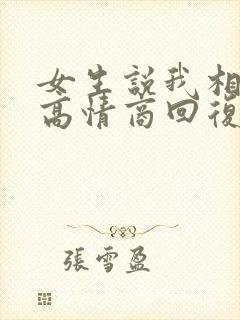 女生說我相
高情商回復
張雪盈